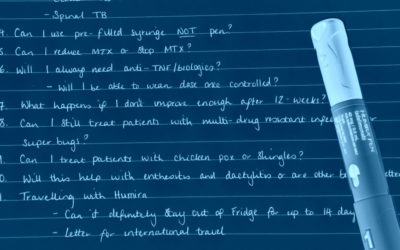 - Spinal TB
4. Can I use pre-filled syringe NOT pen?
5. Can I reduce MTX or stop MTX?
6. Will I always need anti-TNF/biologics?
- Will I be able to wean dose once controlled?
7. What happens if I don't improve enough after 12 weeks?
8. Can I still treat patients with multi-drug resistant
super bugs?
Can I treat patients with chicken pox or shingles?
0. Will this help with enthesitis and dactylitis or are other
1. Travelling with Humira
- Can it definitely stay out of Fridge for up to 14 day
- letter for international travel